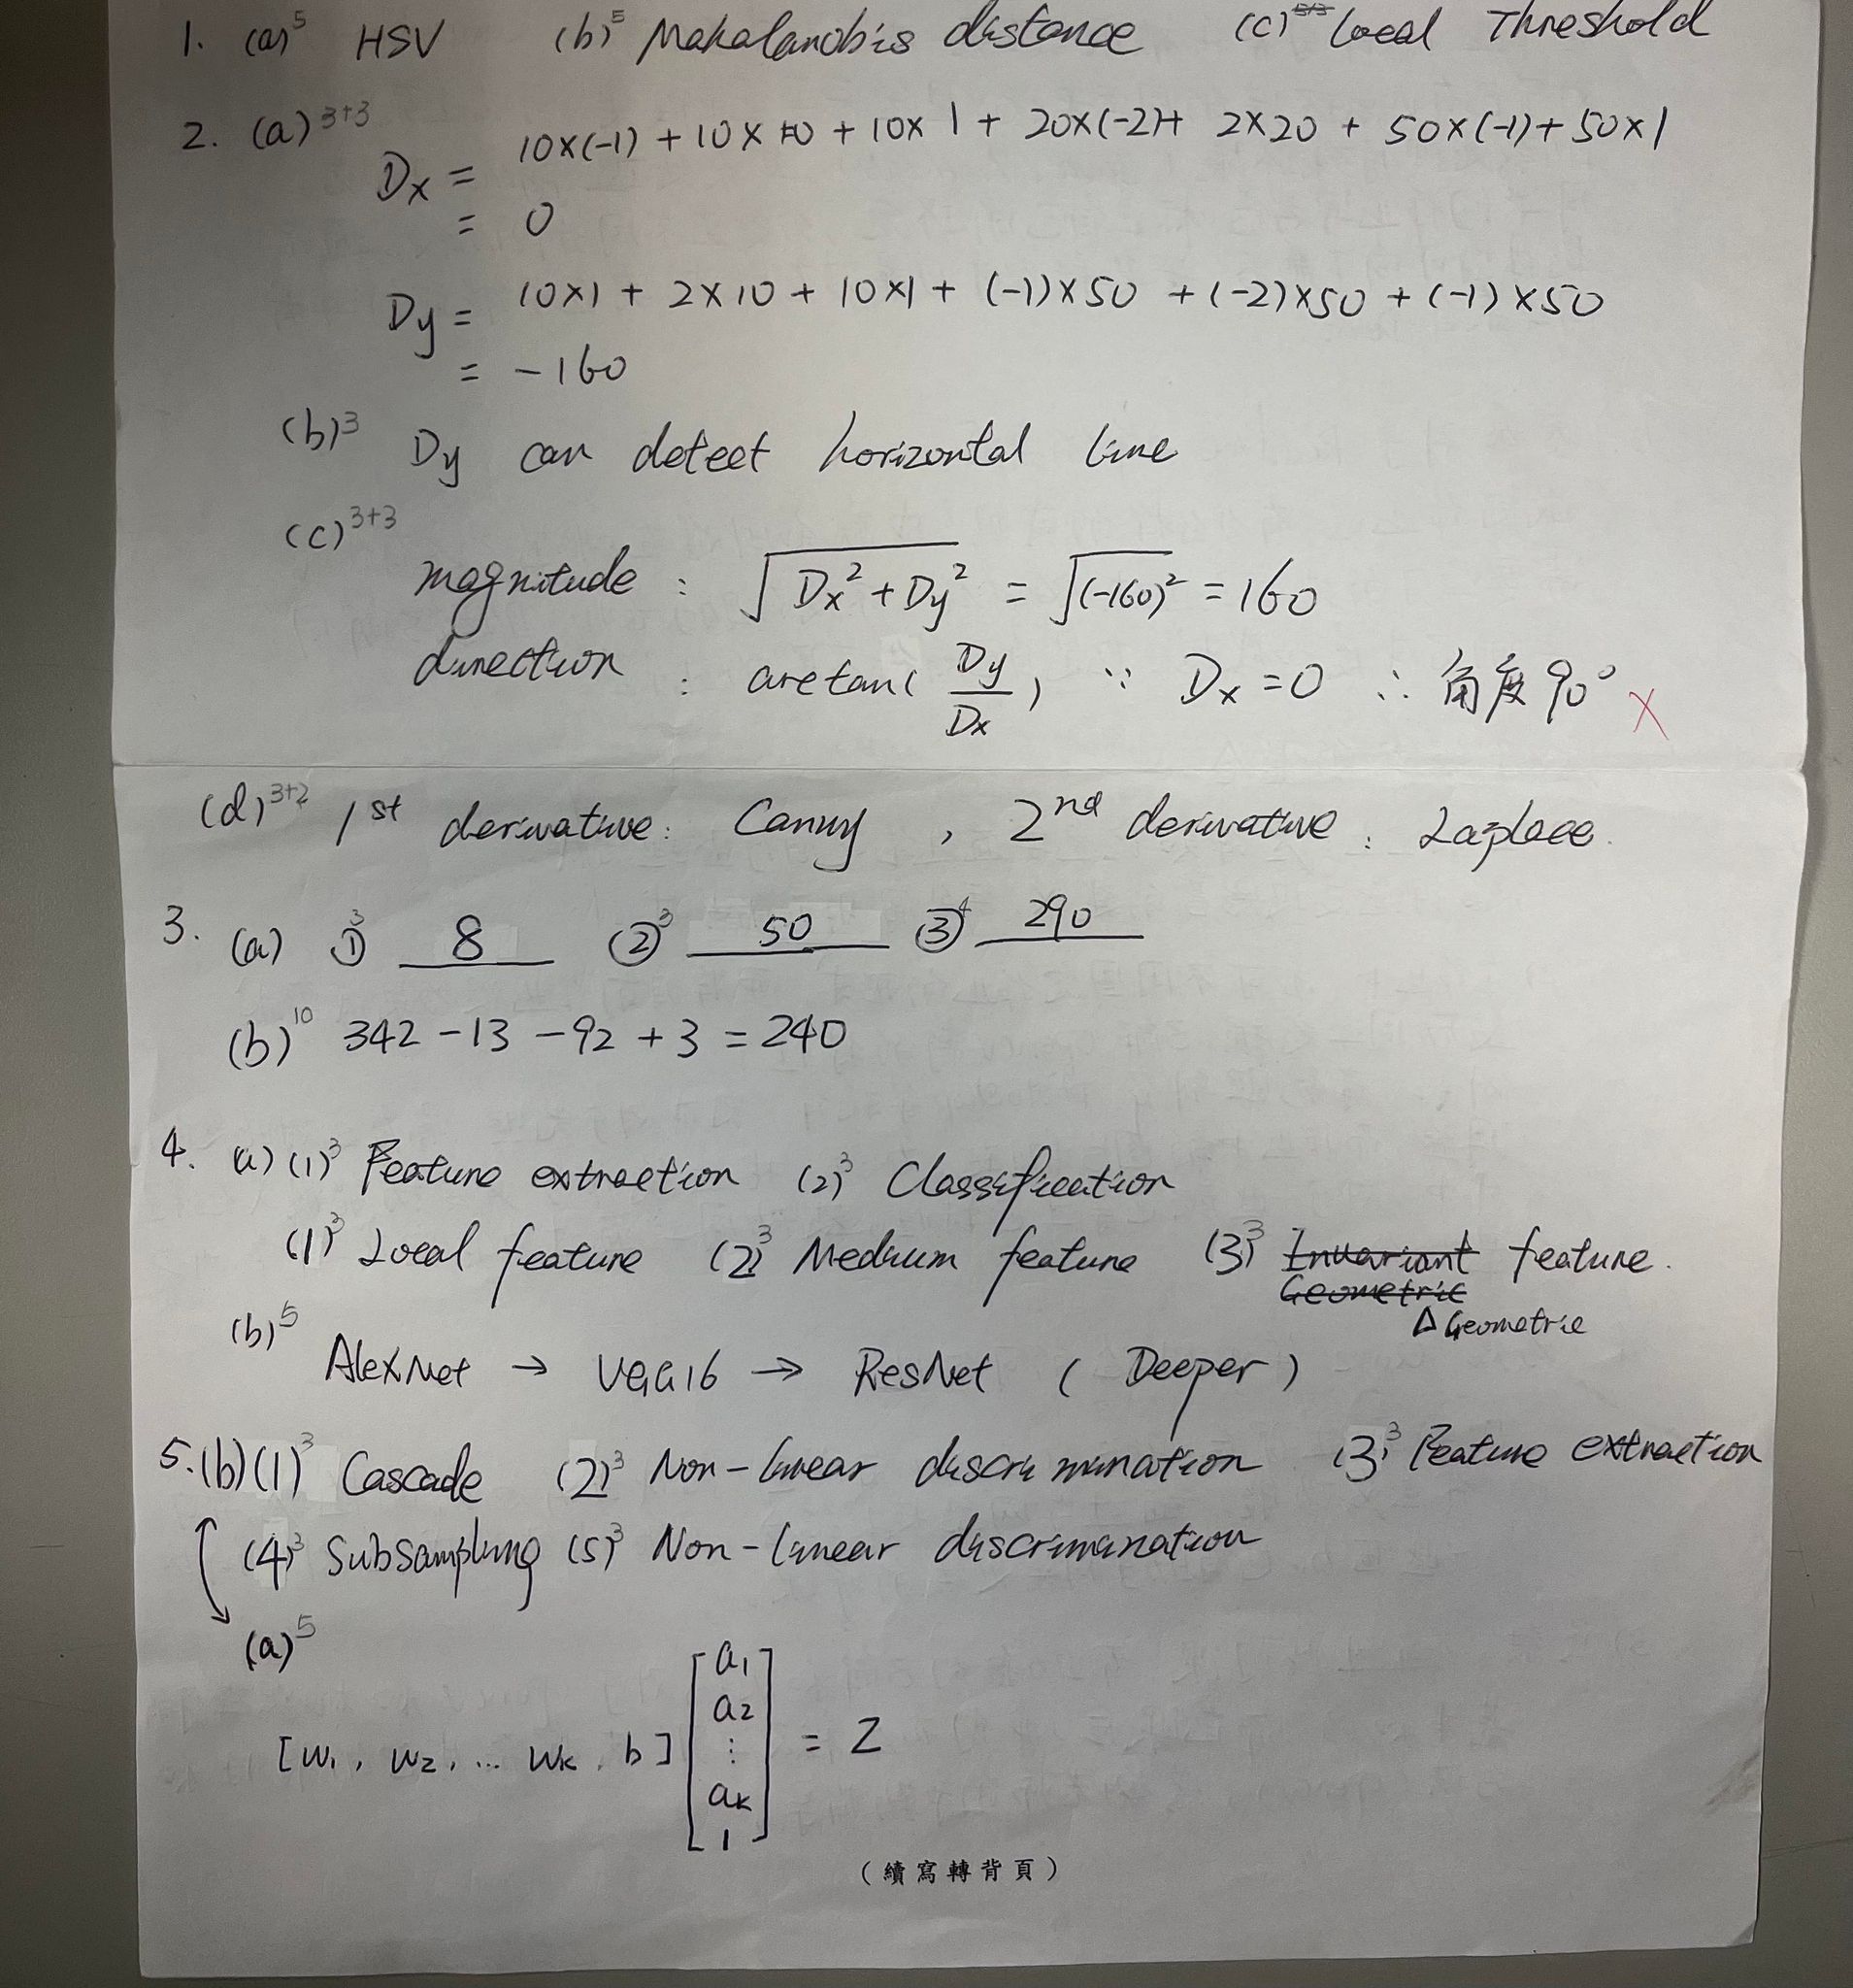 1. (a)⁵ HSV (b)⁵ Mahalanobis distance (c) Local Threshold
2. (a)³⁺³
Dx = 10×(-1) + 10×0 + 10×1 + 20×(-2)+ 2×20 + 50×(-1)+50×1
= 0
Dy = 10×1 + 2×10 + 10×1 + (-1)×50 + (-2)×50 + (-1)×50
= -160
(b)³ Dy can detect horizontal line
(c)³⁺³
magnitude : √(Dx²+Dy²) = √(-160)² = 160
direction : arctan(Dy/Dx) ∵ Dx=0 ∴ 角度90° X
(d)³⁺² 1st derivative: Canny , 2nd derivative : Laplace.
3. (a) ①³ 8 ②³ 50 ③⁴ 290
(b)¹⁰ 342 -13 -92 +3 = 240
4. a) (1)³ Feature extraction (2)³ Classification
(1)³ Local feature (2)³ Medium feature (3)³ Invariant feature.
Geometric
Δ Geometric
(b)⁵
AlexNet → VGG16 → ResNet ( Deeper )
5. (b)(1)³ Cascade (2)³ Non-linear discrimination (3)³ Feature extraction
(4)³ Subsampling (5)³ Non-linear discrimination
(a)⁵
[w₁, w₂, ... wk, b] [a₁ a₂ ⋮ ak 1] = Z
(續寫轉背頁)